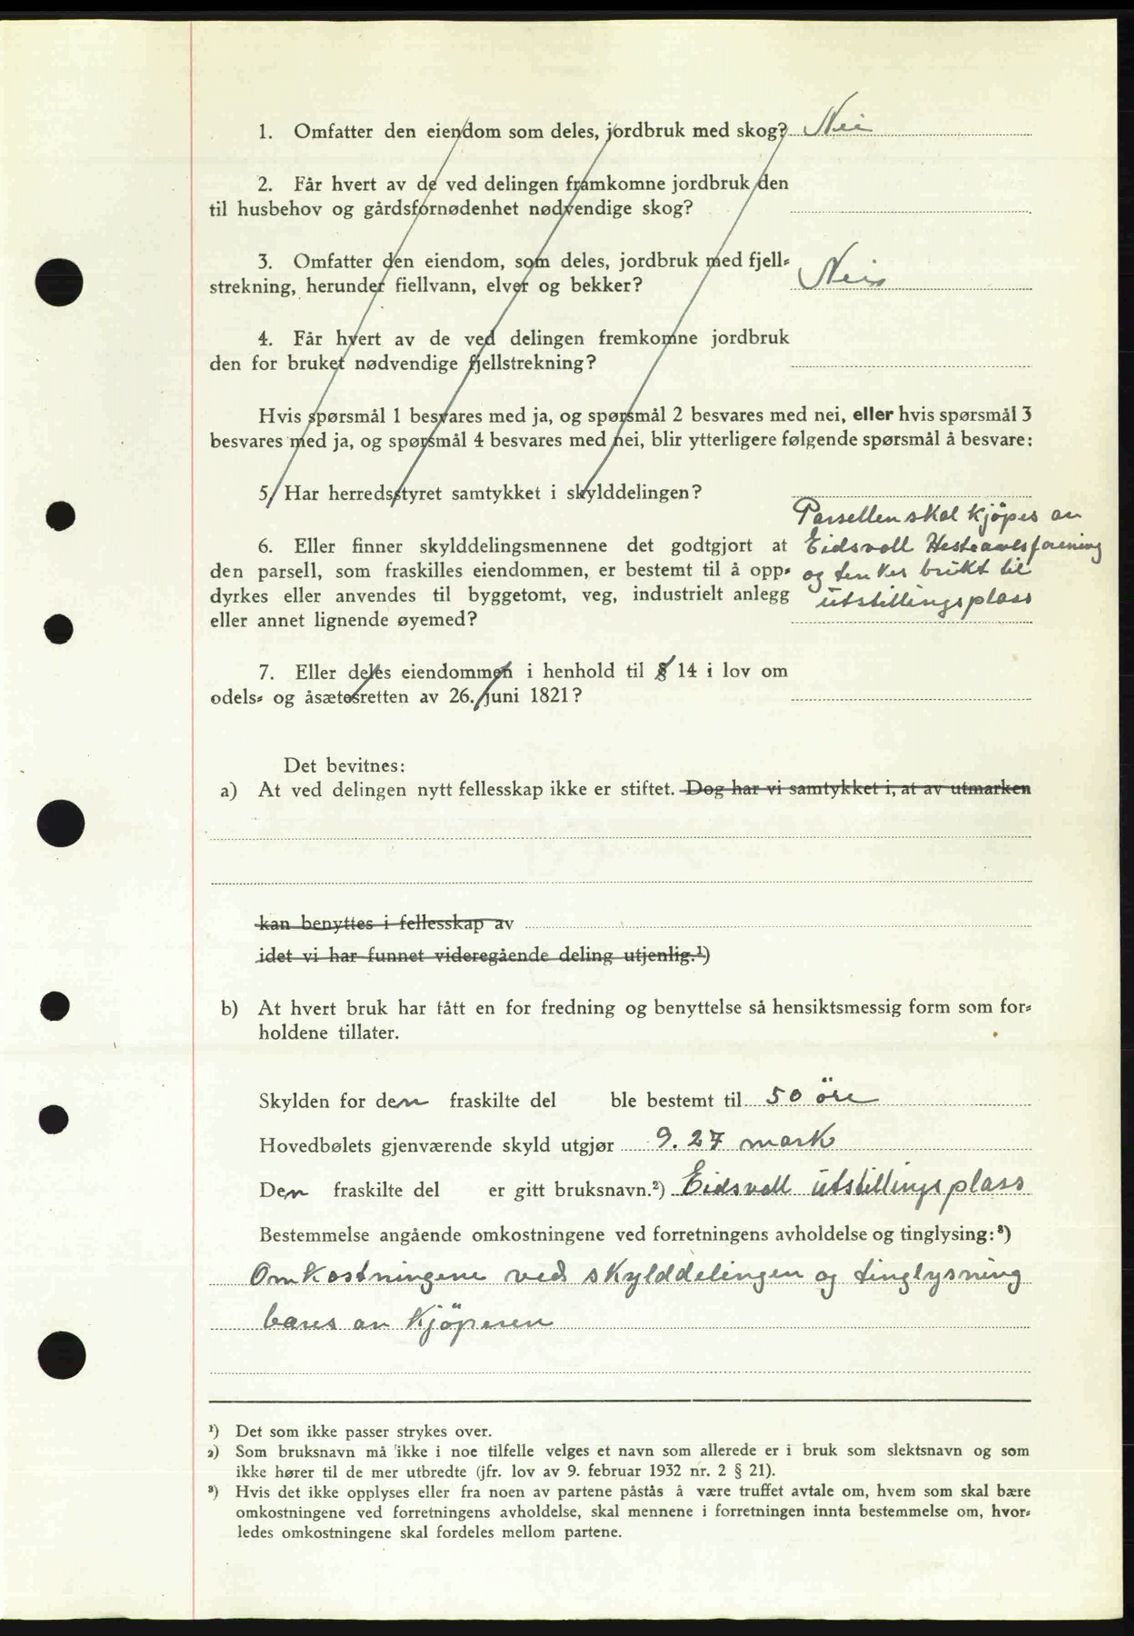 1. Omfatter den eiendom som deles, jordbruk med skog? Nei
2. Får hvert av de ved delingen framkomne jordbruk den
til husbehov og gårdsfornødenhet nødvendige skog?
3. Omfatter den eiendom, som deles, jordbruk med fjell-
strekning, herunder fiellvann, elver og bekker? Nei
4. Får hvert av de ved delingen fremkomne jordbruk
den for bruket nødvendige fjellstrekning?
Hvis spørsmål 1 besvares med ja, og spørsmål 2 besvares med nei, eller hvis spørsmål 3
besvares med ja, og spørsmål 4 besvares med nei, blir ytterligere følgende spørsmål å besvare:
5. Har herredsstyret samtykket i skylddelingen?
6. Eller finner skylddelingsmennene det godtgjort at
den parsell, som fraskilles eiendommen, er bestemt til å opp-
dyrkes eller anvendes til byggetomt, veg, industrielt anlegg
eller annet lignende øyemed?
Parsellen skal kjöpes av
Eidsvoll Hesteavlsforening
og brukt til
utstillingsplass
7. Eller deles eiendommen i henhold til § 14 i lov om
odels- og åsætesretten av 26. juni 1821?
Det bevitnes:
a) At ved delingen nytt fellesskap ikke er stiftet. Dog har vi samtykket i, at av utmarken
kan benyttes i fellesskap av
idet vi har funnet videregående deling utjenlig.¹)
b) At hvert bruk har fått en for fredning og benyttelse så hensiktsmessig form som for-
holdene tillater.
Skylden for den fraskilte del ble bestemt til 50 öre
Hovedbølets gjenværende skyld utgjør 9.27 mark
Den fraskilte del er gitt bruksnavn.²) Eidsvoll utstillingsplass
Bestemmelse angående omkostningene ved forretningens avholdelse og tinglysing:³)
Omkostningene ved skylddelingen og tinglysning
bæres av kjöperen
¹) Det som ikke passer strykes over.
²) Som bruksnavn må ikke i noe tilfelle velges et navn som allerede er i bruk som slektsnavn og som
ikke hører til de mer utbredte (jfr. lov av 9. februar 1932 nr. 2 § 21).
³) Hvis det ikke opplyses eller fra noen av partene påstås å være truffet avtale om, hvem som skal bære
omkostningene ved forretningens avholdelse, skal mennene i forretningen innta bestemmelse om, hvor-
ledes omkostningene skal fordeles mellom partene.